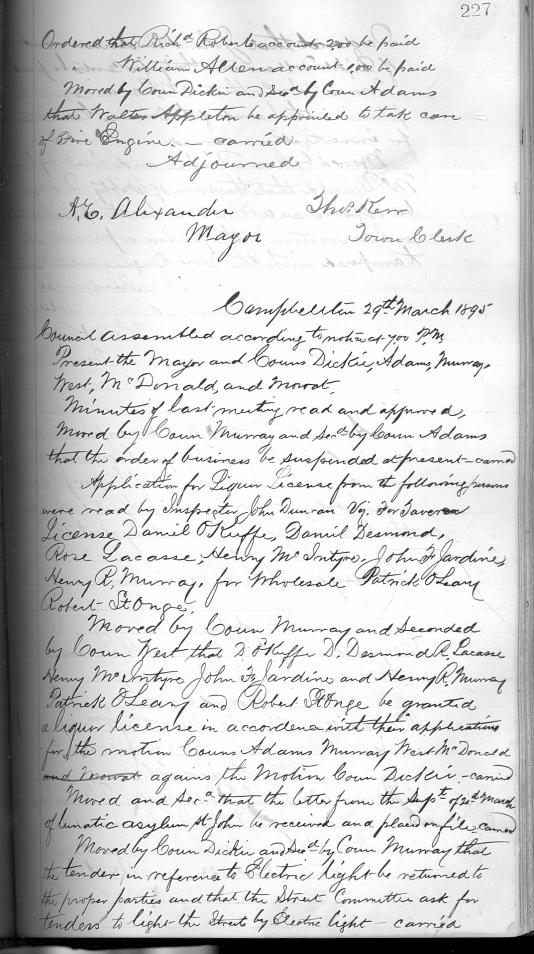 227
Ordered that Rich<sup>d</sup> Roberts account 2.00 be paid
" William Allen account 1.00 be paid
Moved by Coun Dickie and Sec<sup>d</sup> by Coun Adams
that Walter Appleton be appointed to take care
of Fire Engine. – carried
Adjourned
A.E. Alexander Tho<sup>s</sup>. Kerr
Mayor Town Clerk
Campbellton 29<sup>th</sup> March 1895
Council assembled according to notice at 7.00 P.M.
Present the Mayor and Couns Dickie, Adams, Murray,
West, McDonald, and Mowat,
Minutes of last meeting read and approved,
Moved by Coun Murray and Sec<sup>d</sup> by Coun Adams
that the order of business be suspended at present – carried
Application for Liquor License from the following persons
were read by Inspector John Duncan Viz. For Tavern
License Daniel O'Keffe, Daniel Desmond,
Rose Lacasse, Henry McIntyre, John F Jardine,
Henry R. Murray, for Wholesale Patrick O'Leary
Robert St Onge,
Moved by Coun Murray and Seconded
by Coun West that D. O'Keffe D. Desmond R. Lacasse
Henry McIntyre John F. Jardine and Henry R. Murray
Patrick O'Leary and Robert St Onge be granted
a liquor license in accordence with their applications
for, the motion Couns Adams Murray West McDonald
and Mowat agains the Motion Coun Dickie – carried
Moved and Sec<sup>d</sup> that the letter from the Sup<sup>t</sup> of 20<sup>th</sup> March
of lunatic asylum St John be received and placed on file – carried
Moved by Coun Dickie and Sec<sup>d</sup> by Coun Murray that
the tender in reference to Electric light be returned to
the proper parties and that the Street Committee ask for
tenders to light the Streets by Electric light – carried